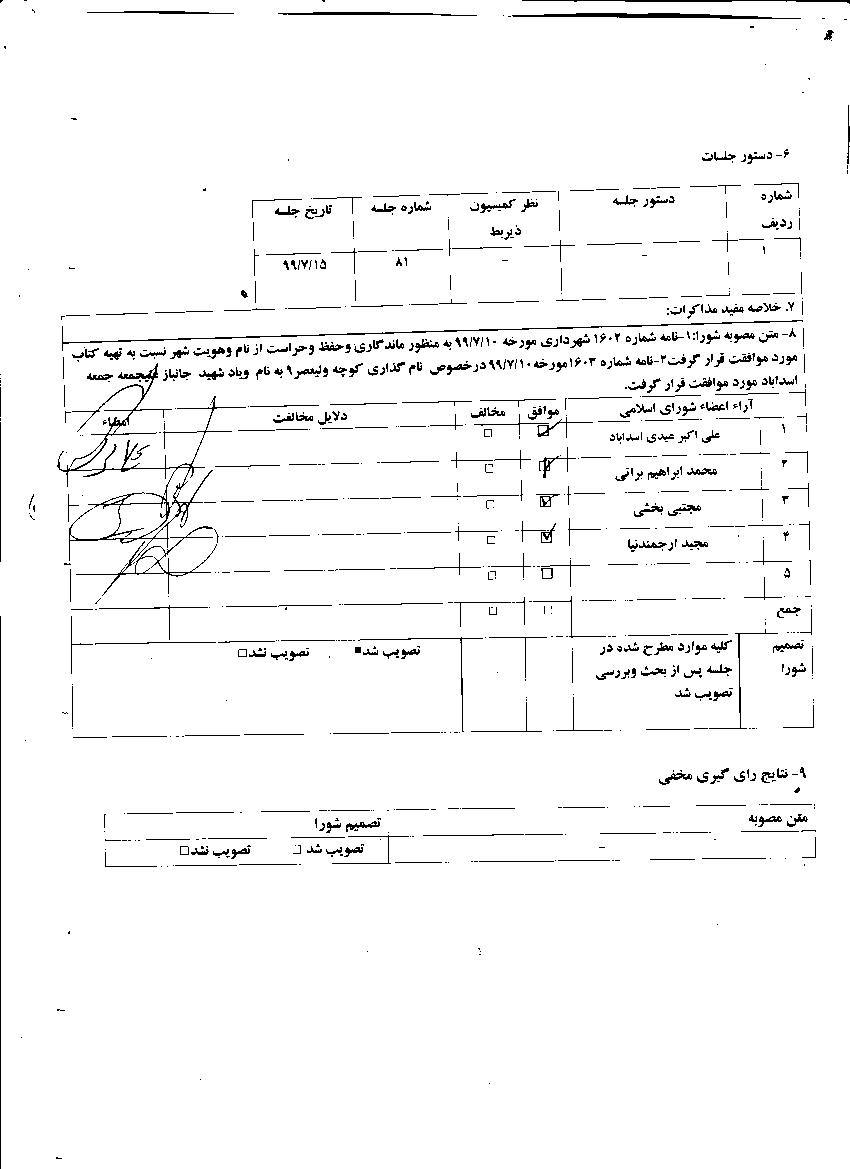 ۶- دستور جلسات
شماره ردیف دستور جلسه نظر کمیسیون ذیربط شماره جلسه تاریخ جلسه
۱ - - ۸۱ ۹۹/۷/۱۵
۷. خلاصه مفید مذاکرات:
۸- متن مصوبه شورا:۱-نامه شماره ۱۶۰۲ شهرداری مورخه ۹۹/۷/۱۰ به منظور ماندگاری وحفظ وحراست از نام وهویت شهر نسبت به تهیه کتاب
مورد موافقت قرار گرفت۲-نامه شماره ۱۶۰۳مورخه۹۹/۷/۱۰درخصوص نام گذاری کوچه ولیعصر۹ به نام ویاد شهید جانباز جمعه
اسداباد مورد موافقت قرار گرفت.
آراء اعضاء شورای اسلامی موافق مخالف دلایل مخالفت امضاء
۱ علی اکبر عیدی اسداباد
۲ محمد ابراهیم براتی
۳ مجتبی بخشی
۴ مجید ارجمندنیا
۵
جمع
تصمیم شورا کلیه موارد مطرح شده در تصویب شد تصویب نشد
جلسه پس از بحث وبررسی
تصویب شد
۹- نتایج رای گیری مخفی
متن مصوبه تصمیم شورا
- تصویب شد تصویب نشد